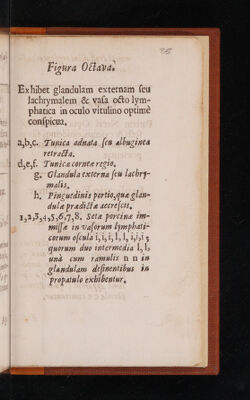 Figura Octava.
Exhibet glandulam externam ſeu
lachrymalem & vaſa octo lym-
phatica in oculo vitulino optimè
conſpicua.
a,b,c. Tunica adnata ſeu albuginea
retracta.
d,e,f. Tunica corneæ regio.
g. Glandula externa ſeu lachry-
malis.
h. Pinguedinis portio, quæ glan-
dulæ prædictæ accreſcit.
1,2,3,4,5,6,7,8. Setæ porcinæ im-
miſſæ in vaſorum lymphati-
corum oſcula i, i, i, l, l, i, i, i;
quorum duo intermedia l, l,
unà cum ramulis n n in
glandulam deſinentibus in
propatulo exhibentur.